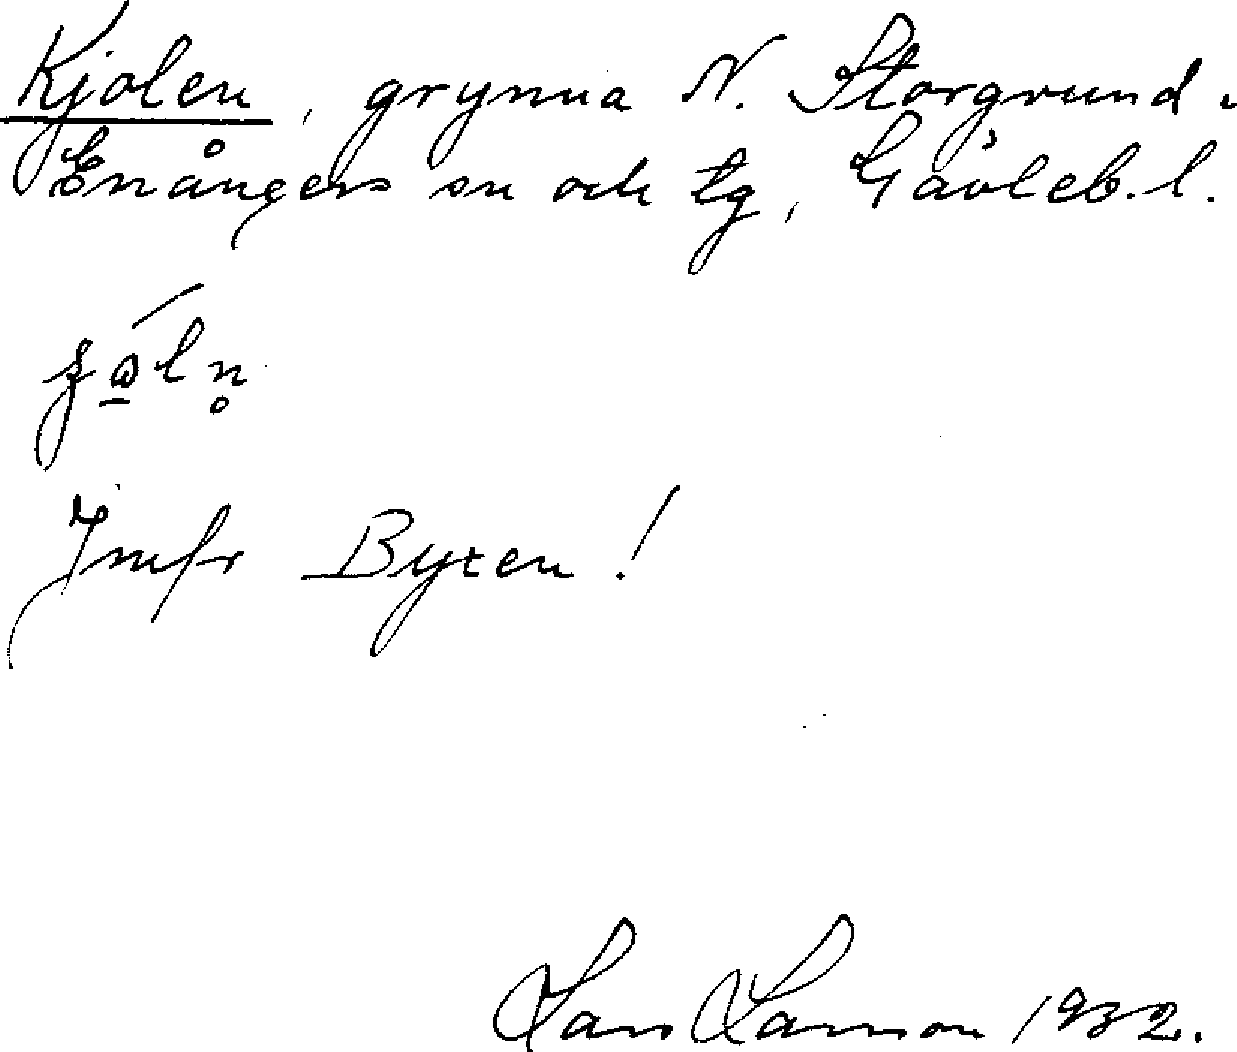 Kjolen, grynna N. Storgrund.
Enångers sn och tg, Gävleb. l.
Jmfr Byxen!
Lars Larsson 1932.